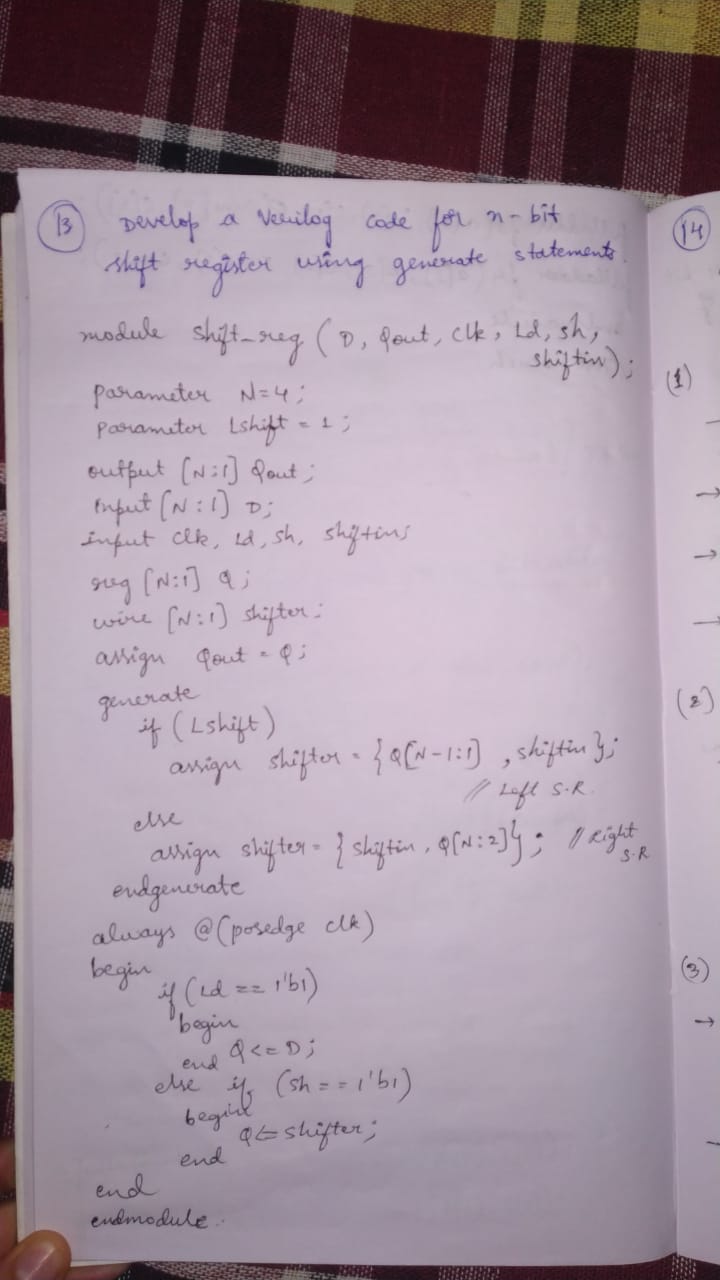 13 Develop a Verilog code for n-bit
shift register using generate statements.
module shift_reg (D, Qout, clk, Ld, sh,
shiftin);
parameter N=4;
parameter Lshift = 1;
output [N:1] Qout;
input [N:1] D;
input clk, Ld, sh, shiftin;
reg [N:1] Q;
wire [N:1] shifter;
assign Qout = Q;
generate
if (Lshift)
assign shifter = {Q[N-1:1], shiftin};
// Left S.R.
else
assign shifter = {shiftin, Q[N:2]}; // Right
S.R
endgenerate
always @(posedge clk)
begin
if (Ld == 1'b1)
begin
Q<=D;
end
else if (sh == 1'b1)
begin
Q<=shifter;
end
end
endmodule.
14
(1)
→
→
(2)
(3)
→